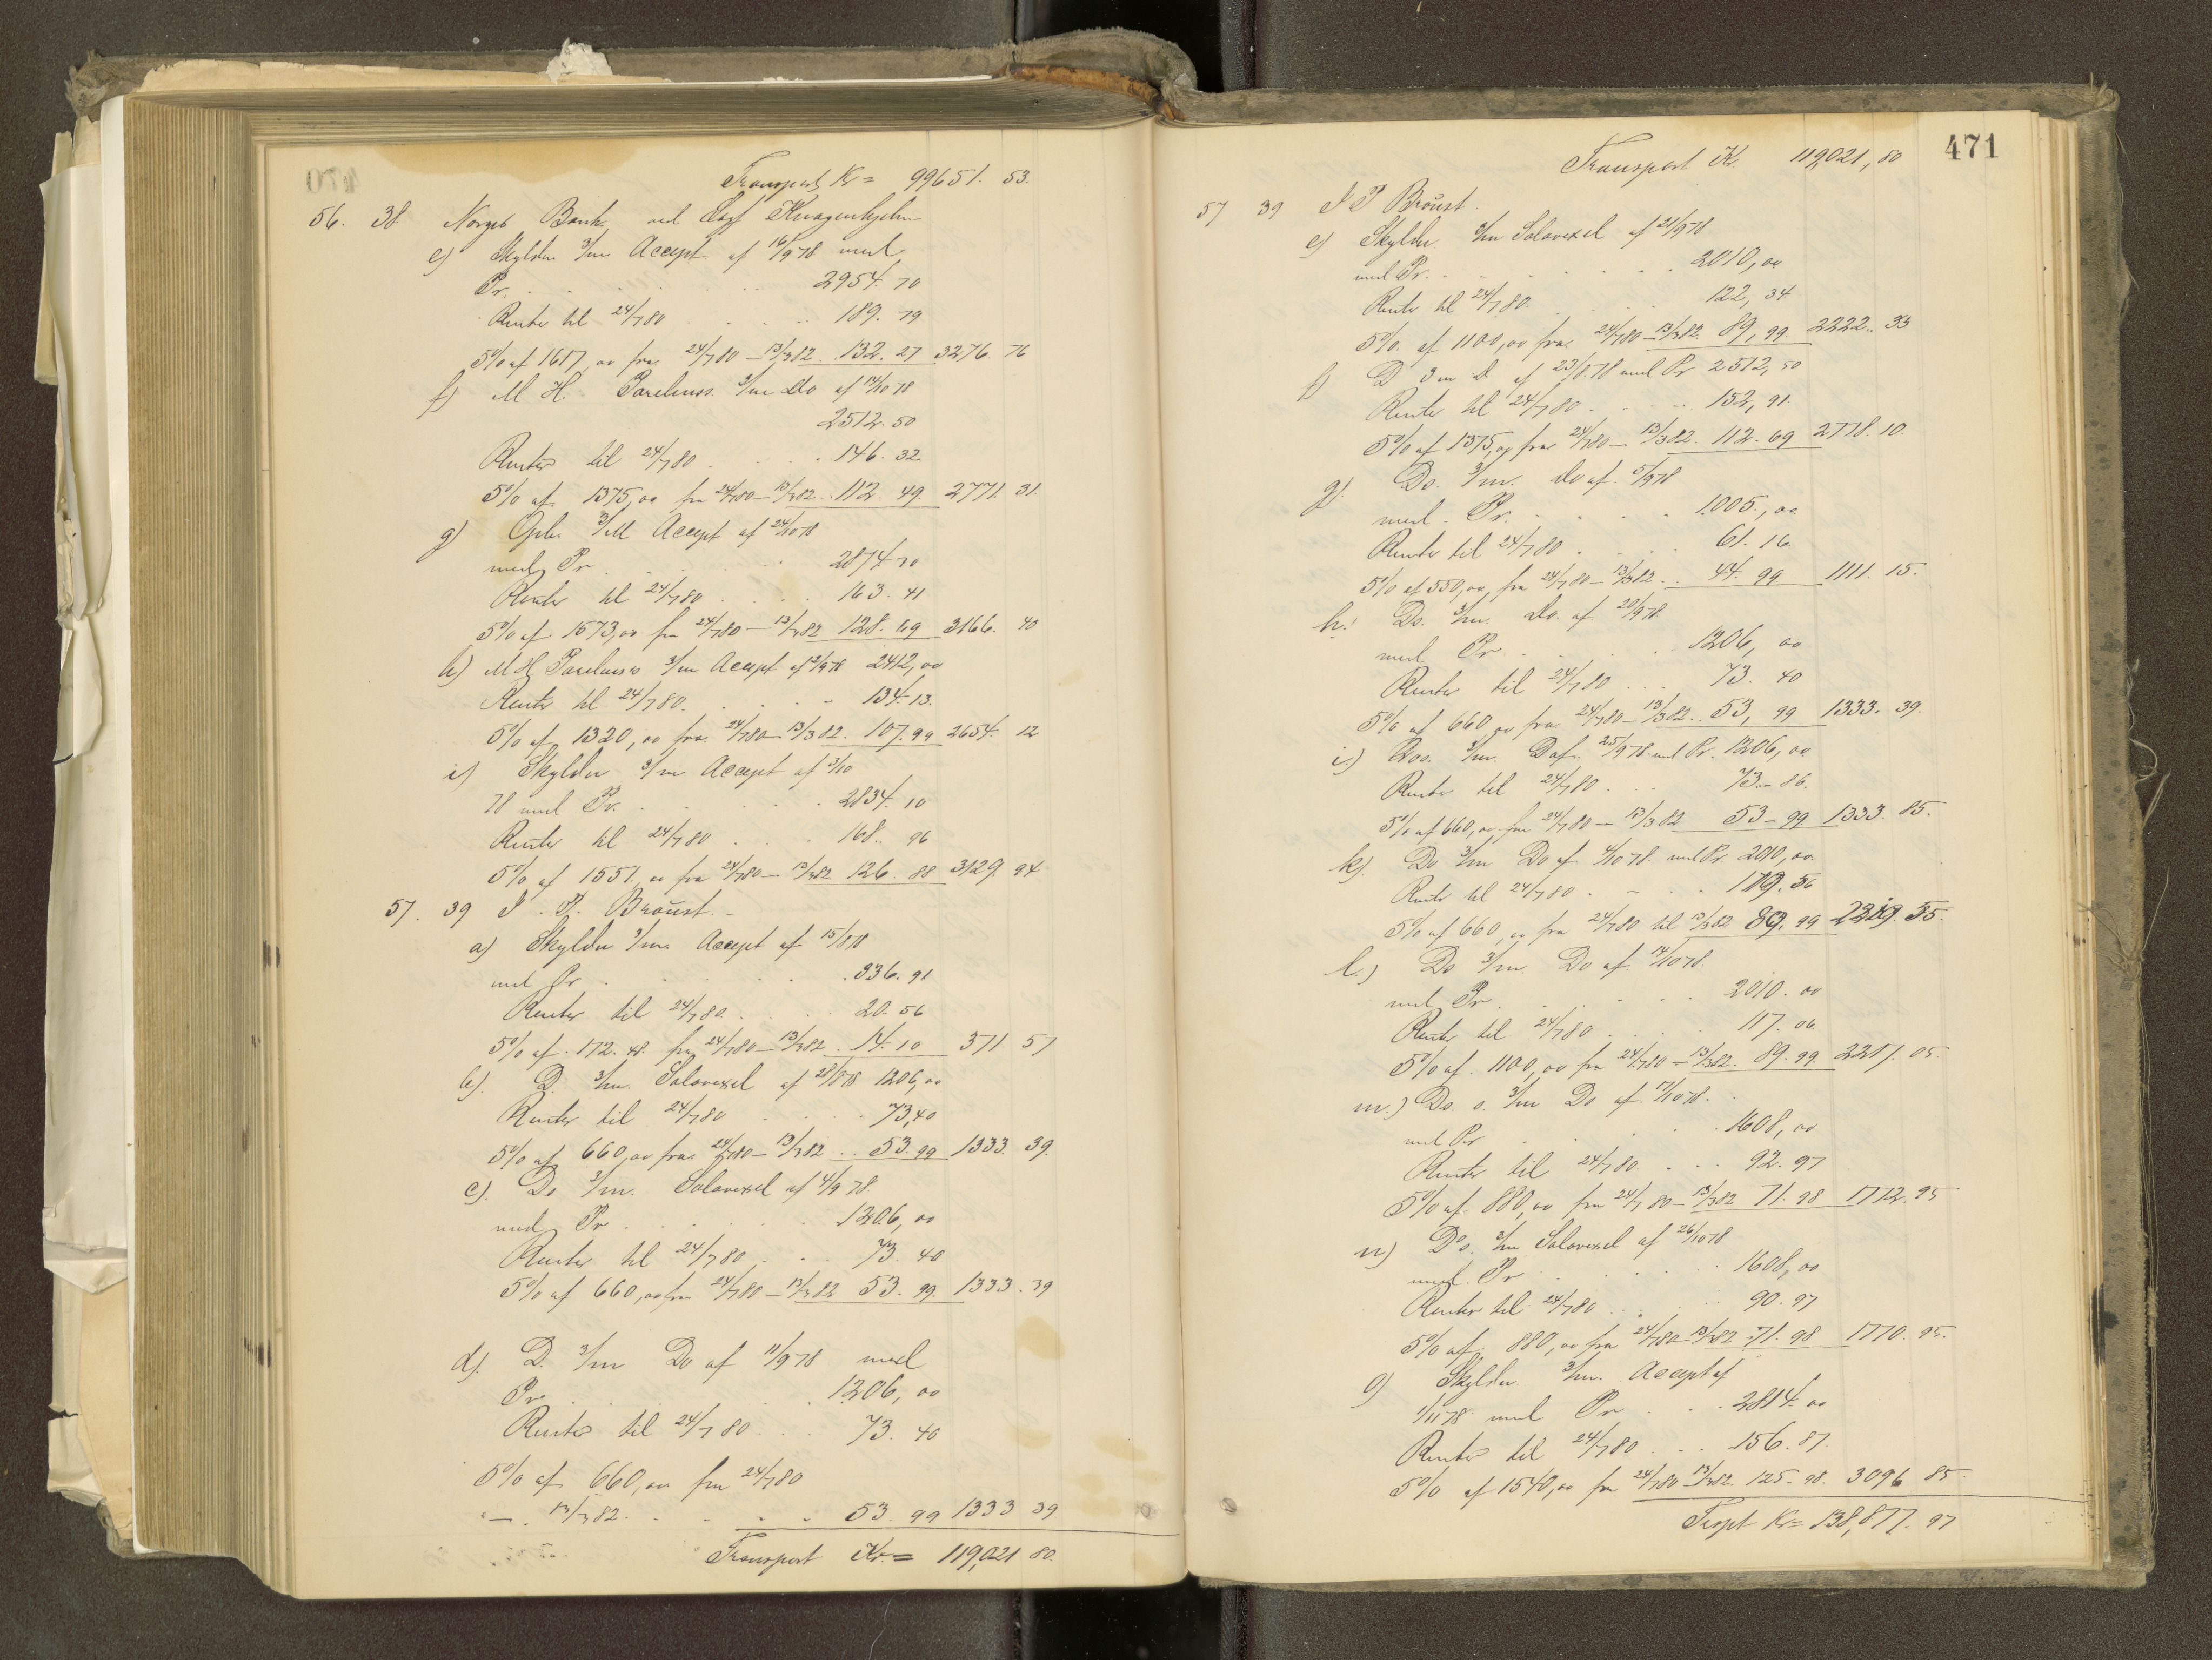 Transport Kr = 99651. 53.
56. 38 Norges Bank ved Sagf Knagenhjelm
e) Skylder 3/m Accept af 16/9 78 med
Pr. 2954. 70
Renter til 24/7 80 189. 79
5% af 1617,00 fra 24/7 80 – 13/3 82 132. 27 3276. 76
f) M. H. 3/m Do af 14/10 78
2512. 50
Renter til 24/7 80 146. 32
5% af 1375,00 fra 24/7 80 – 13/3 82 112. 49. 2771. 31.
g) 3/M Accept af 24/10 78
med Pr 2874 70
Renter til 24/7 80 163. 41
5% af 1573,00 fra 24/7 80 – 13/3 82 128. 69 3166. 40
h) M H 3/m Accept af 2412,00
Renter til 24/7 80. 134. 13.
5% af 1320,00 fra 24/7 80 – 13/3 82. 107. 99 2654. 12
i) Skylder 3/m Accept af 3/10
78 med Pr. 2834. 10
Renter til 24/7 80 168. 96
5% af 1551.00 fra 24/7 80 – 13/3 82 126. 88 3129. 94
57. 39 I. P. Broüst. –
a) Skylder 3/m Accept af 15/8 78
med Pr 336. 91
Renter til 24/7 80. 20. 56
5% af 172. 48. fra 24/7 80 – 13/3 82. 14. 10 371 57
b). D. 3/m. Solavexel af 28/8 78 1206,00
Renter til 24/7 80 73,40
5% af 660,00 fra 24/7 80 – 13/3 82 53. 99 1333. 39.
c). Do 3/m. Solavexel af 4/9 78
med Pr 1206,00
Renter til 24/7 80 73. 40
5% af 660,00 fra 24/7 80 – 13/3 82 53. 99. 1333. 39
d). D. 3/m Do af 11/9 78 med
Pr 1206,00
Renter til 24/7 80 73. 40
5% af 660,00 fra 24/7 80
– 13/3 82. 53. 99 1333 39
Transport Kr. = 119,021 80.
471
Transport Kr 119,021,80
57 39 I P Broüst.
e) Skylder 3/m Solavexel af 21/9 78
med Pr. 2010,00
Renter til 24/7 80. 122,34
5% af 1100,00 fra 24/7 80 – 13/3 82. 89,99. 2222. 33
f) D 3 m D af 23/8 78 med Pr 2512,50
Renter til 24/7 80 152,91.
5% af 1375,00 fra 24/7 80 – 13/3 82. 112. 69 2778. 10.
g). Do. 3/m. do af 5/9 78
med Pr. 1005.,00
Renter til 24/7 80 61. 16
5% af 550,00 fra 24/7 80 – 13/3 82 44. 99 1111. 15.
h. Do. 3/m. do. af 20/9 78
med Pr 1206,00
Renter til 24/7 80 73. 40
5% af 660,00 fra 24/7 80 – 13/3 82 53,99 1333. 39.
i.) Dos. 3/m. D af 25/9 78 med Pr. 1206,00
Renter til 24/7 80 73. – 86.
5% af 660,00 fra 24/7 80 – 13/3 82 53 – 99 1333. 85.
k). Do 3/m Do af 4/10 78 med Pr. 2010,00
Rente til 24/7 80 119. 56
5% af 660,00 fra 24/7 80 til 13/3 82 89. 99 2219. 55.
l.) Do 3/m. Do af 14/10 78.
med Pr 2010. 00
Renter til 24/7 80 117. 06
5% af 1100,00 fra 24/7 80 – 13/3 82. 89. 99. 2217. 05.
m.) Do. s. 3/m Do af 17/10 78.
med Pr 1608,00
Renter til 24/7 80. 92. 97
5% af 880,00 fra 24/7 80 – 13/3 82 71. 98 1772. 95
n) Do. 3/m Solavexel af 26/10 78
med Pr 1608,00
Renter til 24/7 80 90. 97
5% af 880,00 fra 24/7 80 – 13/3 82 71. 98 1770. 95.
o) Skylder 3/m. Accept af
1/11 78 med Pr 2814. 00
Renter til 24/7 80 156. 87.
5% af 1540,00 fra 24/7 80 – 13/3 82. 125. 98. 3096 85.
Trspt Kr = 138,877. 97